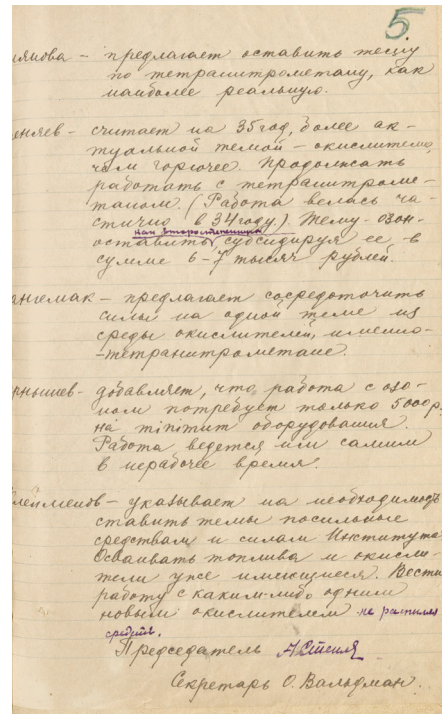 5
иянова – предлагает оставить тему
по тетранитрометану, как
наиболее реальную.
еняев – считает на 35 год, более ак-
туальной темой – окислители,
чем горючее. Продолжать
работать с тетранитроме-
таном. (Работа велась ча-
стично в 34 году.). Тему – озон –
как второстепенную
оставить, субсидируя ее, в
сумме 6-7 тысяч рублей.
ангемак – предлагает сосредоточить
силы на одной теме из
среды окислителей, именно
– тетранитрометане.
рнышев – добавляет, что, работа с озо-
ном потребует только 5000 р.
на minimum оборудования.
Работа ведется им самим
в нерабочее время.
леменов – указывает на необходимость
ставить темы посильные
средствам и силам Института.
Осваивать топлива и окисли-
тели уже имеющиеся. Вести
работу с каким-либо одним
новым окислителем не распыляя
средств.
Председатель
Секретарь О. Вальдман.